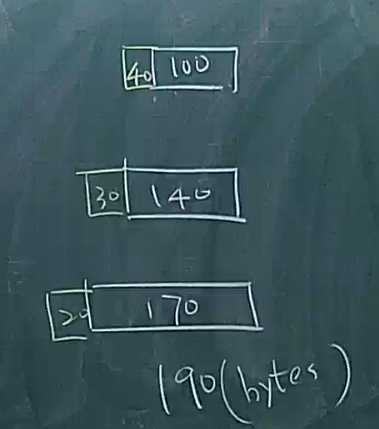 40 100
30 140
20 170
190 (bytes)